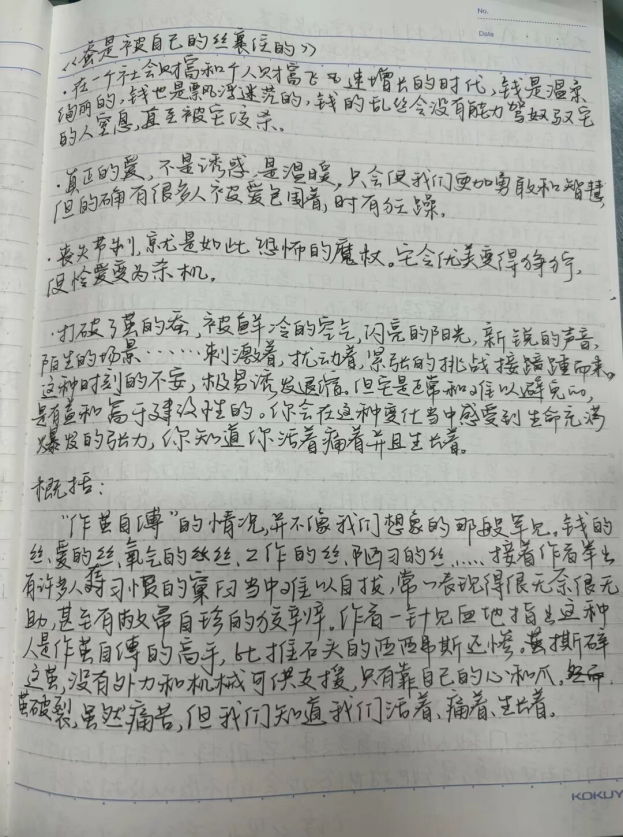 No.
Date
《蚕是被自己的丝裹住的》
·在一个社会财富和个人财富飞速增长的时代,钱是温柔
绚丽的,钱也是飘浮迷茫的,钱的乱丝令没有能力驾奴驭它
的人窒息,直至被它绞杀。
·真正的爱,不是诱惑,是温暖,只会使我们更加勇敢和智慧,
但的确有很多人被爱包围着,时有狂躁。
·丧失节制,就是如此恐怖的魔杖。它会优美变得狰狞,
使怜爱变为杀机。
·打破了茧的蚕,被鲜冷的空气,闪亮的阳光,新锐的声音,
陌生的场景……刺激着,扰动着,紧张的挑战接踵而来。
这种时刻的不安,极易诱发退缩。但它是正常和难以避免的,
是有益和富于建设性的。你会在这种变化当中感受到生命充满
爆发的张力,你知道你活着痛着并且生长着。
概括:
"作茧自缚"的情况,并不像我们想象的那般罕见。钱的
丝、爱的丝、氧气的丝、工作的丝、陋习的丝……接着作者举出
有许多人在习惯的窠臼当中难以自拔,常一表现得很无奈很无
助,甚至有敝帚自珍的狡辩。作者一针见血地指出这种
人是作茧自缚的高手,比推石头的西西弗斯还惨。要撕碎
这茧,没有外力和机械可供支援,只有靠自己的心和爪,然而
茧破裂,虽然痛苦,但我们知道我们活着、痛着、生长着。
KOKUY